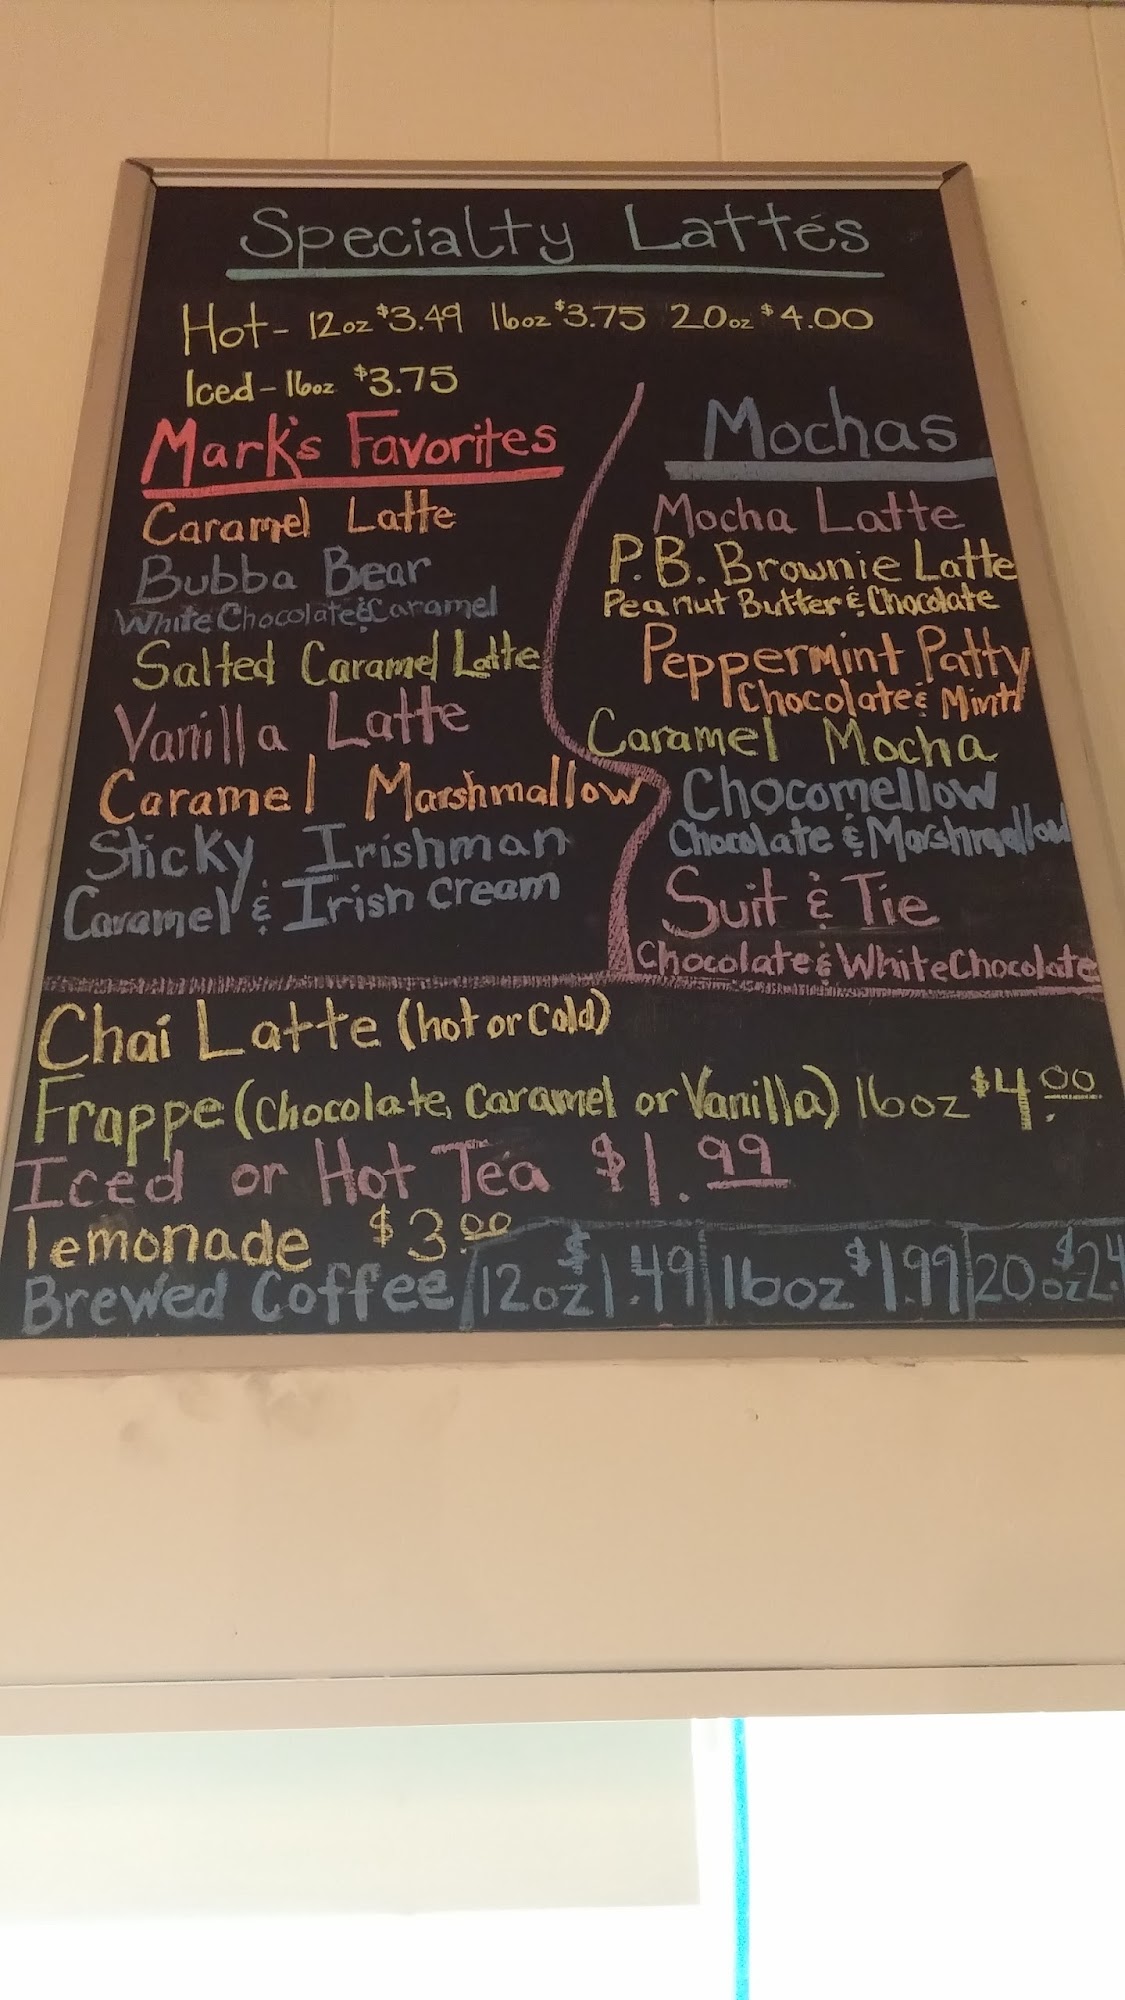 Specialty Lattés
Hot- 12oz $3.49 16oz $3.75 20oz $4.00
Iced-16oz $3.75
Mark's Favorites
Caramel Latte
Bubba Bear
White Chocolate & Caramel
Salted Caramel Latte
Vanilla Latte
Caramel Marshmallow
Sticky Irishman
Caramel & Irish Cream
Mochas
Mocha Latte
P.B. Brownie Latte
Peanut Butter & Chocolate
Peppermint Patty
Chocolate & Mint
Caramel Mocha
Chocomellow
Chocolate & Marshmallow
Suit & Tie
Chocolate & White Chocolate
Chai Latte (hot or Cold)
Frappe (Chocolate, Caramel or Vanilla) 16oz $4.00
Iced or Hot Tea $1.99
lemonade $3.00
Brewed Coffee 12oz $1.49 16oz $1.99 20oz